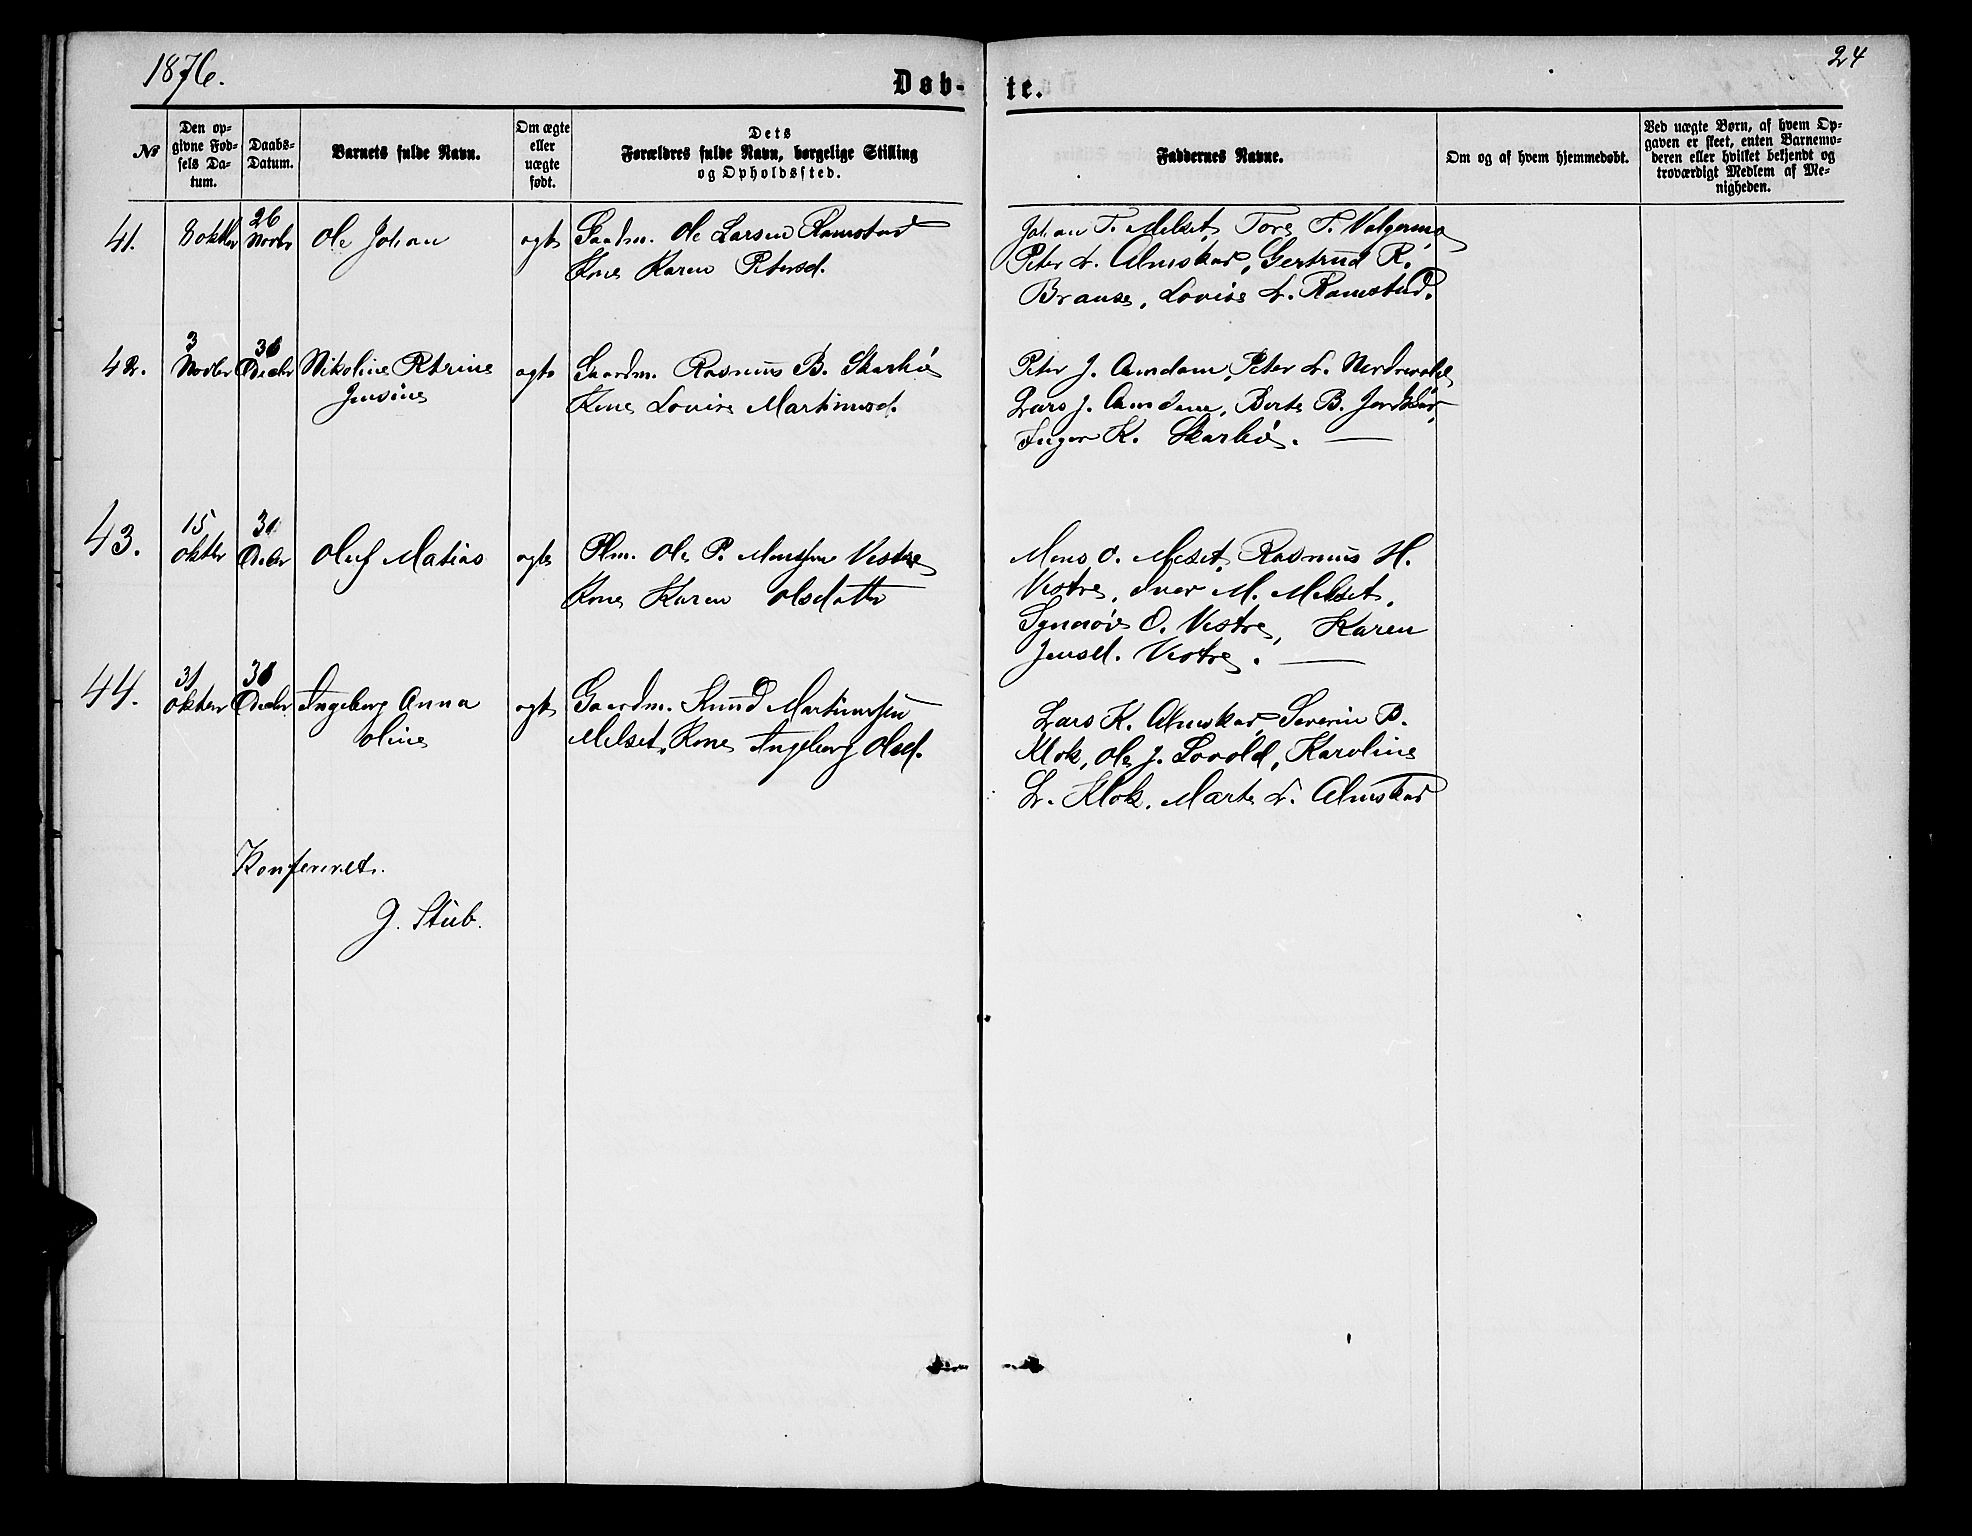 1876.
24
Døb-
te.
No
Den op-
givne Fød-
sels Da-
tum.
Daabs-
Datum.
Barnets fulde Navn.
Om ægte
eller
uægte
født.
Dets
Forældres fulde Navn, borgelige Stilling
og Opholdssted.
Faddernes Navne.
Om og af hvem hjemmedøbt.
Ved uægte Børn, af hvem Op-
gaven er skeet, enten Barnemo-
deren eller hvilket bekjendt og
troværdigt Medlem af Me-
nigheden.
41.
8 oktbr
26
Novbr
Ole Johan
ægte
Gaardm. Ole Larsen Ramstad
Kone Karen Petersd.
Johan T. Melset, Tore T.
Peter L. Almskar, Gertrud R.
Brause, Lovise L. Ramstad.
42.
3
Novbr
31
Decbr
Nikoline Petrine
Jensine
ægte
Gaardm. Rasmus B. Skarbø
Kone Lovise Martinusd.
Peter J. Amdam, Peter L.
Lars J. Amdam, Berte B.
Inger K. Skarbø.
43.
15
oktbr
31
Decbr
Oluf Matias
ægte
Plm. Ole P. Vestre
Kone Karen Olsdatter
Mons O. Melset, Rasmus H.
Vestre, Iver M. Melset,
Synnøve O. Vestre, Karen
Jensd. Vestre.
44.
31
oktber
31
Decbr
Ingeborg Anna
Oline
ægte
Gaardm. Knud Martinussen
Melset, Kone Ingeborg Olsd.
Lars K. Almskar, Severin B.
Klok, Ole J. Lovold, Karoline
L. Klok, Marte L. Almskar
Konfereret.
J. Stub.